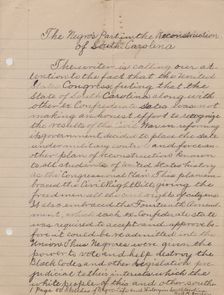 The Negro's Part in the Reconstruction
of South Carolina
The writer is calling our at-
tention to the fact that the United
States Congress, feeling that the
State of South Carolina along with
other ex Confederate States was not
making an honest effort to recognize
the results of the Civil War in reforming
its government decided to place the state
under military control and force an
other plan of Reconstruction known
to all students of the United States history
as the Congressional Plan. This plan em-
braced the Civil Rights Bill giving the
freedmen all the
It also embraced the Fourteenth Amend-
ment, which each ex Confederate state
was required to accept and approve be-
fore it could be readmitted in the
Union. Thus Negroes were given the
power to vote and help destroy the
Black Code and other legislation pre-
judicial to their interests which the
white people of this and other south